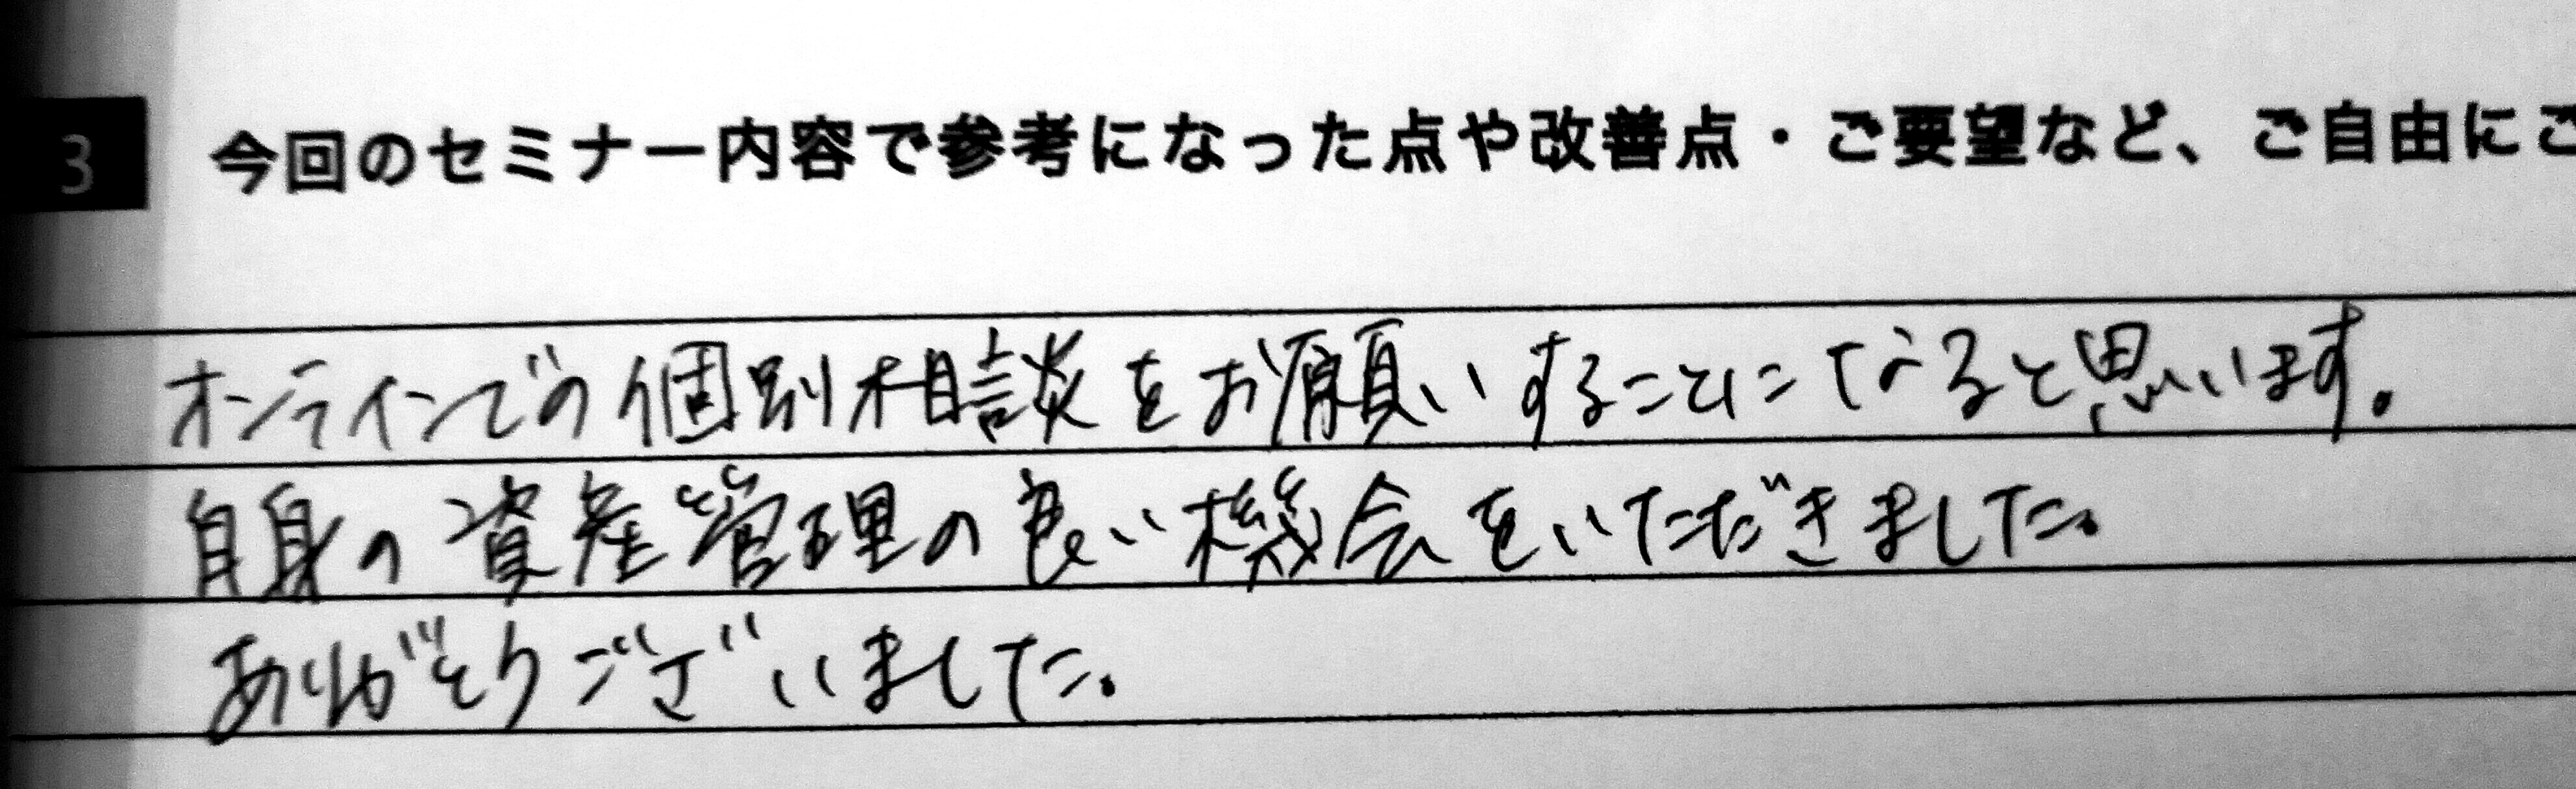 3 今回のセミナー内容で参考になった点や改善点・ご要望など、ご自由にご
オンラインでの個別相談をお願いすることになると思います。
自身の資産管理の良い機会をいただきました。
ありがとうございました。